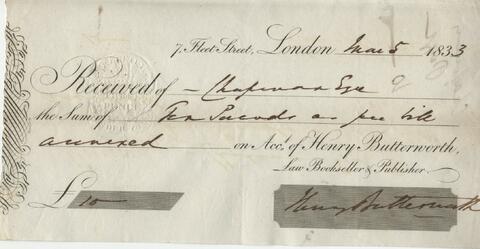 7, Fleet Street, London Mar 5 1833
Received of – Chapman Esqr
the Sum of Ten Pounds as per bill
annexed on Acct. of Henry Butterworth,
Law Bookseller & Publisher
£ 10 Henry Butterworth